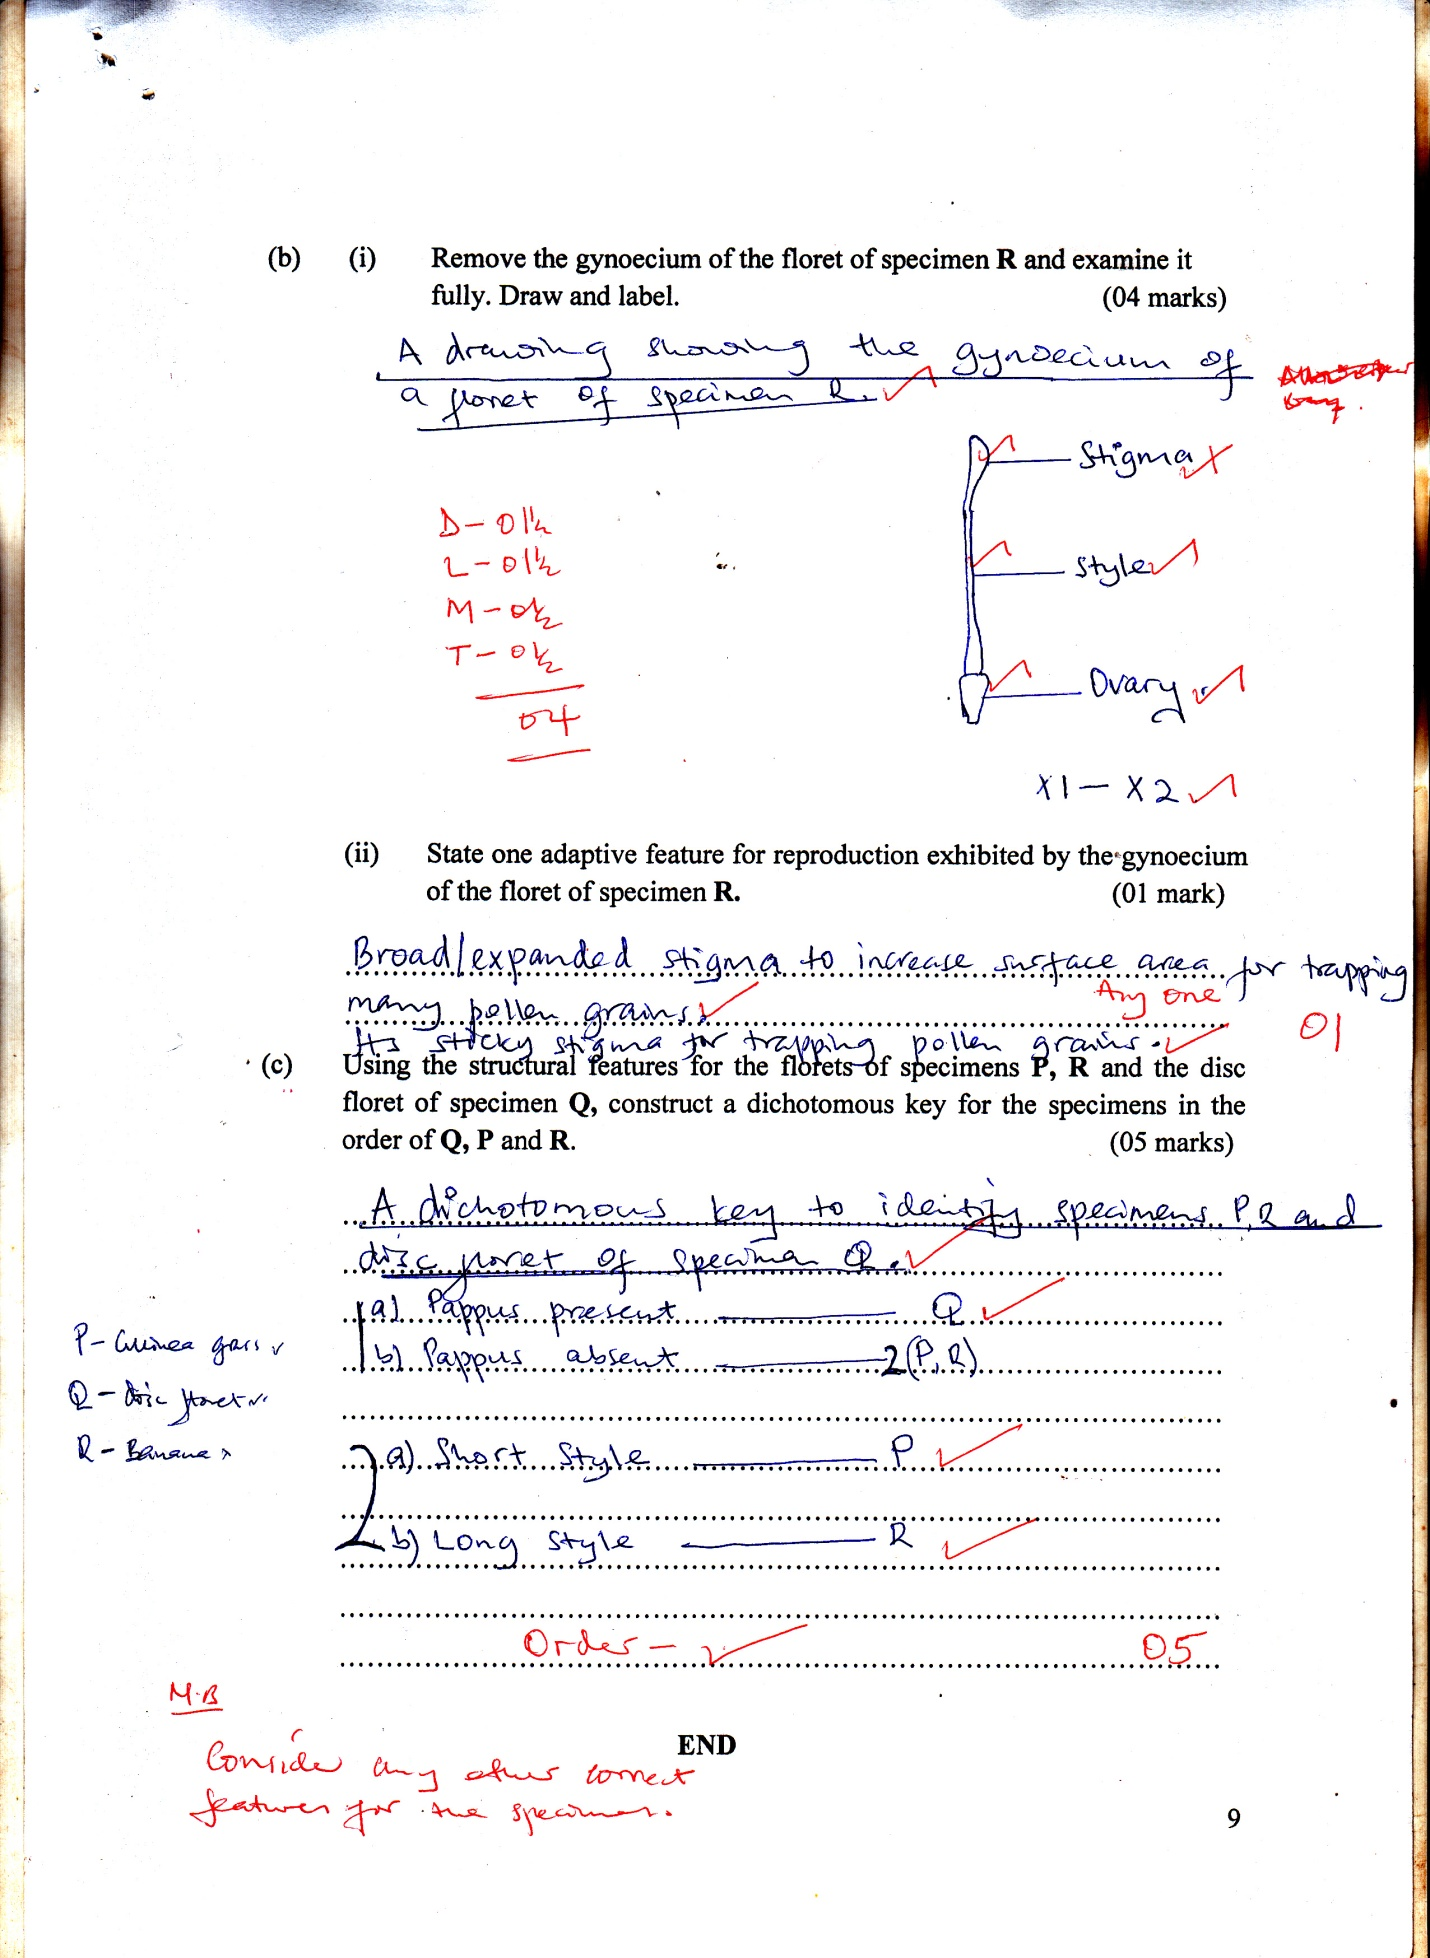 (b) (i) Remove the gynoecium of the floret of specimen R and examine it
fully. Draw and label. (04 marks)
A drawing showing the gynoecium of
a floret of specimen R.
Stigma
D - 01½
L - 01½
style
M - 0½
T - 0½
Ovary
04
X1 - X2
(ii) State one adaptive feature for reproduction exhibited by the gynoecium
of the floret of specimen R. (01 mark)
Broad/expanded stigma to increase surface area for trapping
many pollen grains. Any one
01
Its sticky stigma for trapping pollen grains.
(c) Using the structural features for the florets of specimens P, R and the disc
floret of specimen Q, construct a dichotomous key for the specimens in the
order of Q, P and R. (05 marks)
A dichotomous key to identify specimens P, R and
disc floret of specimen Q.
1 a) Pappus present Q
P - Guinea grass
b) Pappus absent 2(P,R)
Q - disc floret
R - Banana
2 a) Short style P
b) Long style R
Order - 05
END
Consider any other correct
features for the specimens.
9